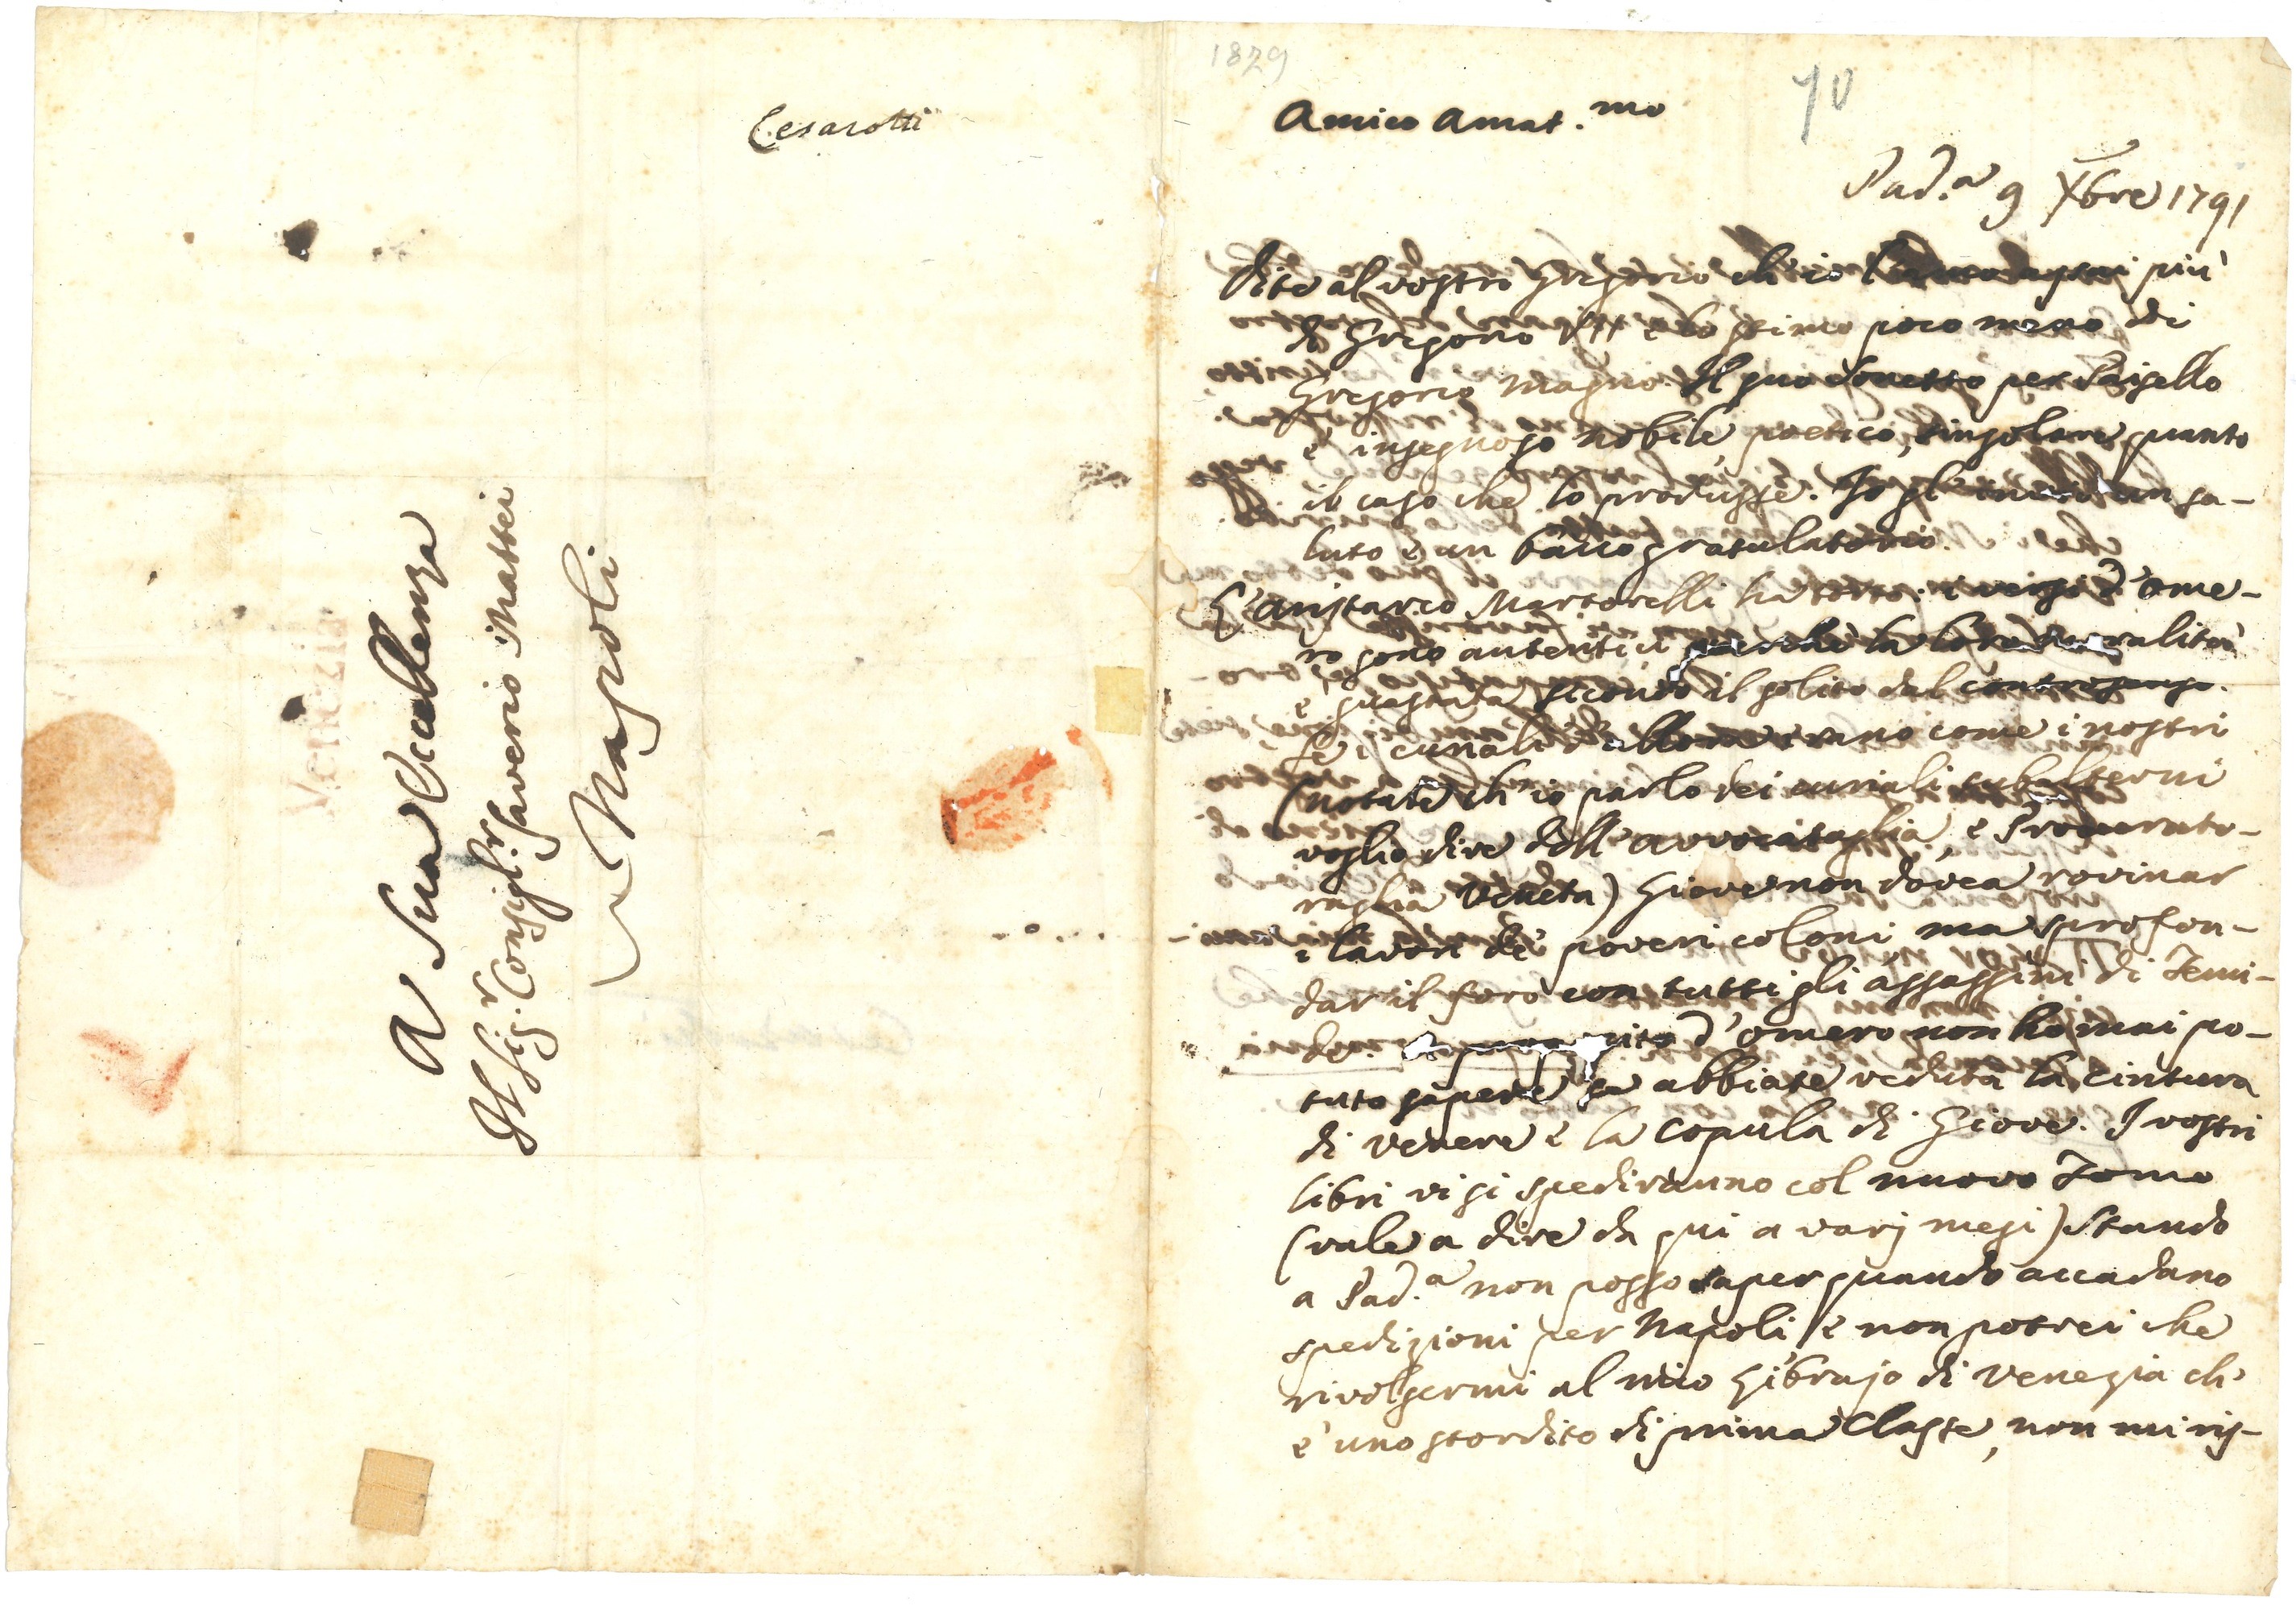 Cesarotti
A Sua Eccellenza
Il Sig.r Consigl.r Saverio Mattei
Napoli
Venezia
1829
70
Amico Amat.mo
Pad.a 9 Xbre 1791
Dite al vostro Gregorio ch'io l'amo assai più
di Gregorio VII e lo stimo poco meno di
Gregorio Magno. Il suo Sonetto per Paisello
è ingegnoso nobile, poetico, singolare quanto
il caso che lo produsse. Io gl'invio un sa-
luto e un bacio gratulatorio.
L'Aristarco Martorelli ha torto: i versi d'Ome-
ro sono autentici la loro moralità
è guastata secondo il solito dal controsenso.
Se i curiali d'allora erano come i nostri
(notate ch'io parlo dei curiali subalterni
voglio dire dell'avvocataglia, e Procurato-
raglia Veneta) Giove non dovea rovinar
i lavori de' poveri coloni ma sprofon-
dar il foro con tutti gli assassini di Temi-
de. d'Omero non ho mai po-
tuto sapere se abbiate veduta la cintura
di Venere e la copula di Giove. I vostri
libri vi si spediranno col nuovo Tomo
(vale a dire da qui a varj mesi) Stando
a Pad.a non posso saper quando accadano
spedizioni per Napoli, e non potrei che
rivolgermi al mio Librajo di Venezia ch'
è uno stordito di prima Classe, non mi ris-